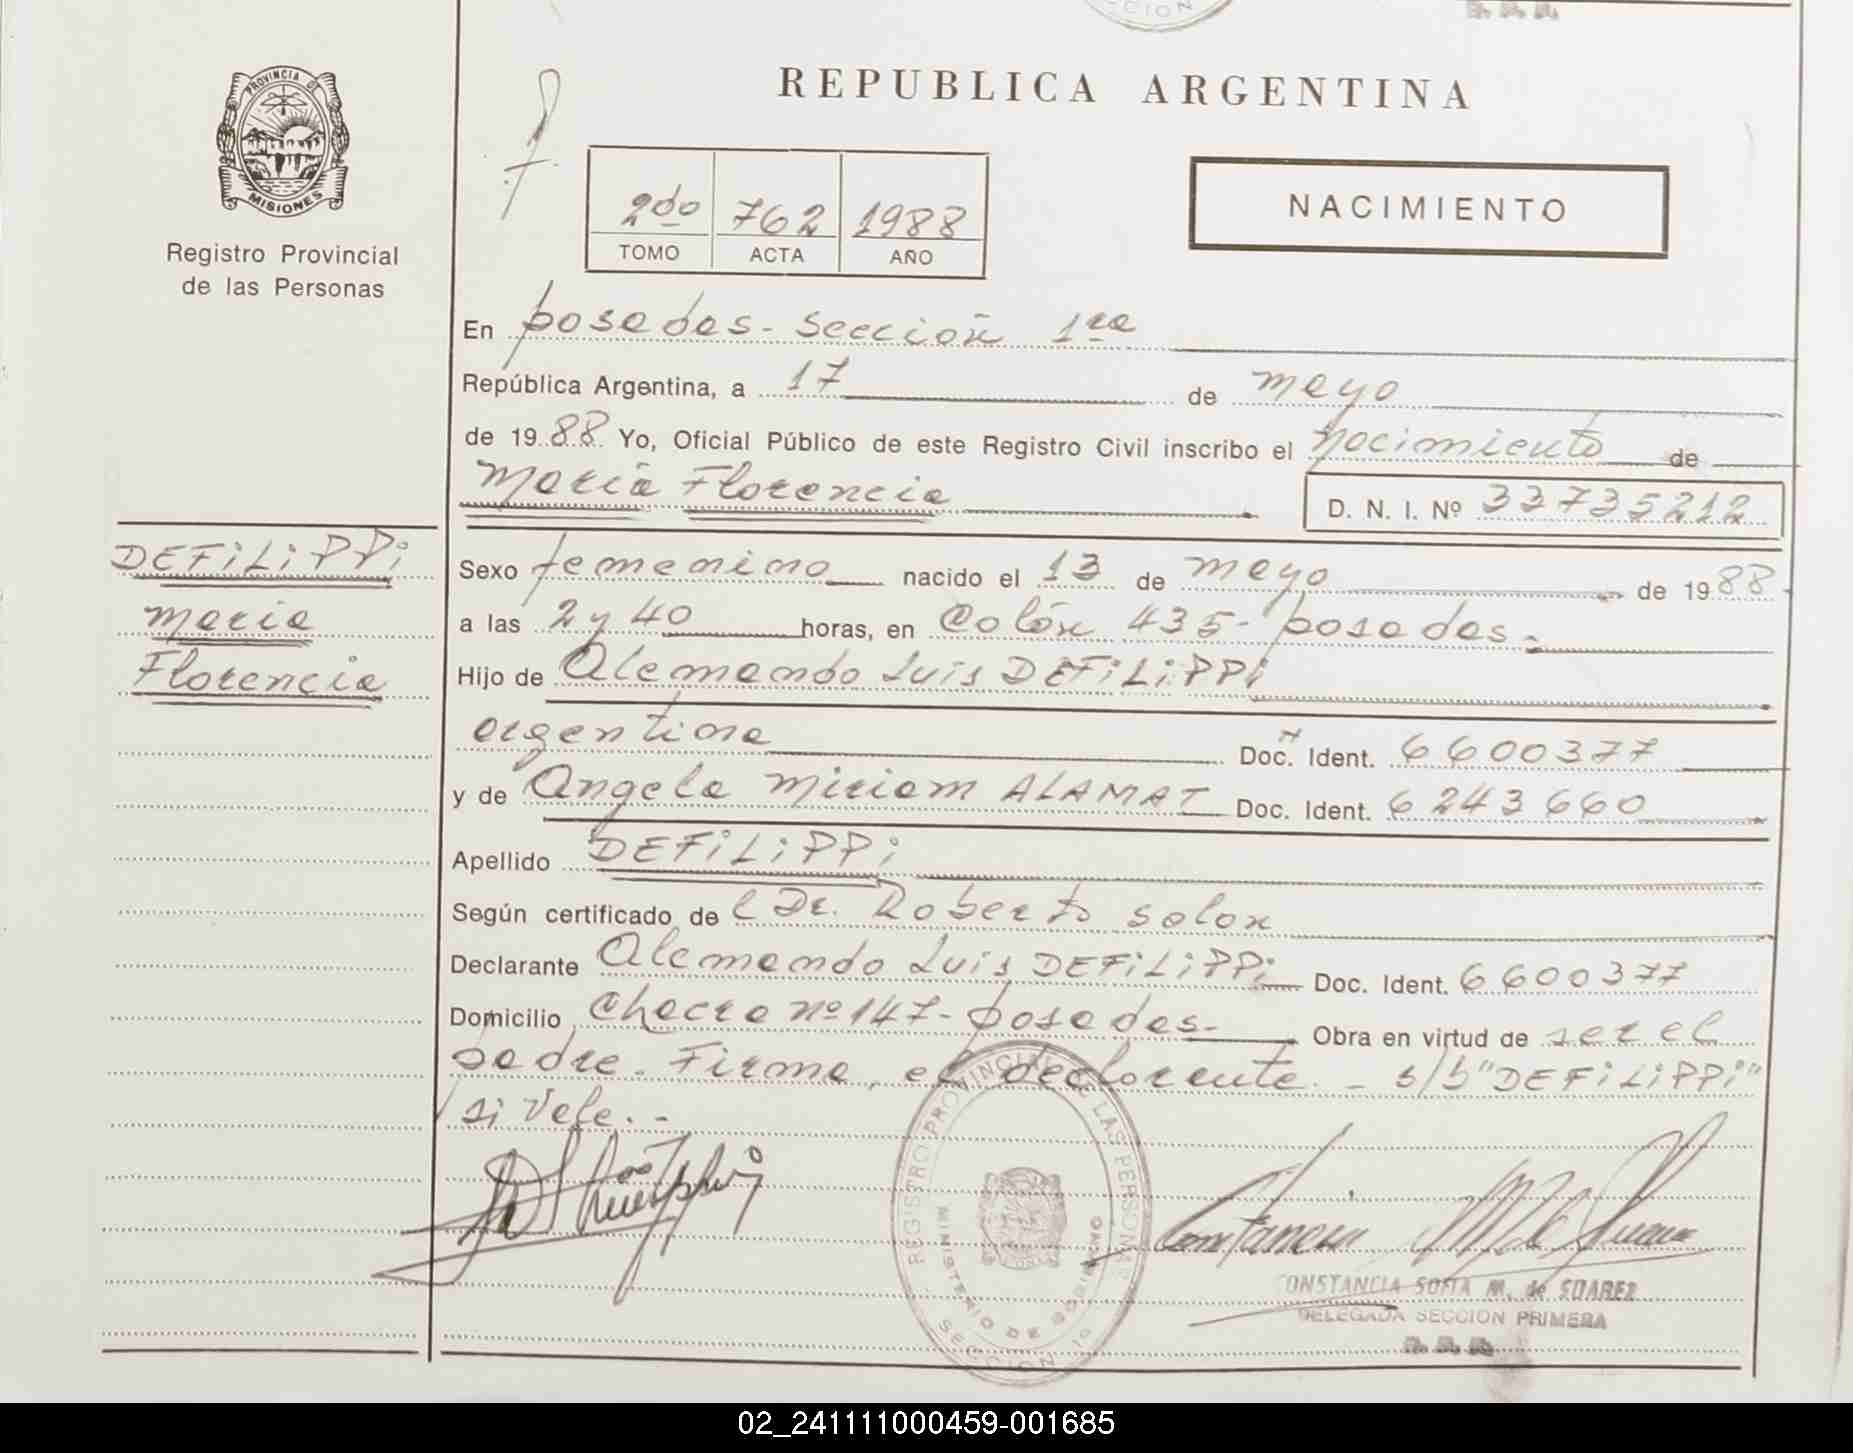 PROVINCIA DE
MISIONES
Registro Provincial
de las Personas
REPUBLICA ARGENTINA
2do 762 1988
TOMO ACTA AÑO
NACIMIENTO
En posadas - sección 1ra
República Argentina, a 17 de mayo
de 1988 Yo, Oficial Público de este Registro Civil inscribo el nacimiento de
María Florencia D. N. I. Nº 33735212
DEFILIPPI
María
Florencia
Sexo femenino nacido el 13 de mayo de 1988
a las 2 y 40 horas, en Colón 435 - posadas.
Hijo de Alemando Luis DEFILIPPI
argentina Doc. Ident. 6600377
y de Angela Miriam ALAMAT Doc. Ident. 6243660
Apellido DEFILIPPI
Según certificado de l Dr. Roberto Solox
Declarante Alemando Luis DEFILIPPI Doc. Ident. 6600377
Domicilio Chacra nº 147 - posadas - Obra en virtud de ser el
padre. Firma, el declarante. - s/b "DEFILIPPI"
si Vale. -
REGISTRO PROVINCIAL DE LAS PERSONAS
MINISTERIO DE GOBIERNO
SECCION 1a
CONSTANCIA SOFIA M. de SUAREZ
DELEGADA SECCION PRIMERA
02_241111000459-001685